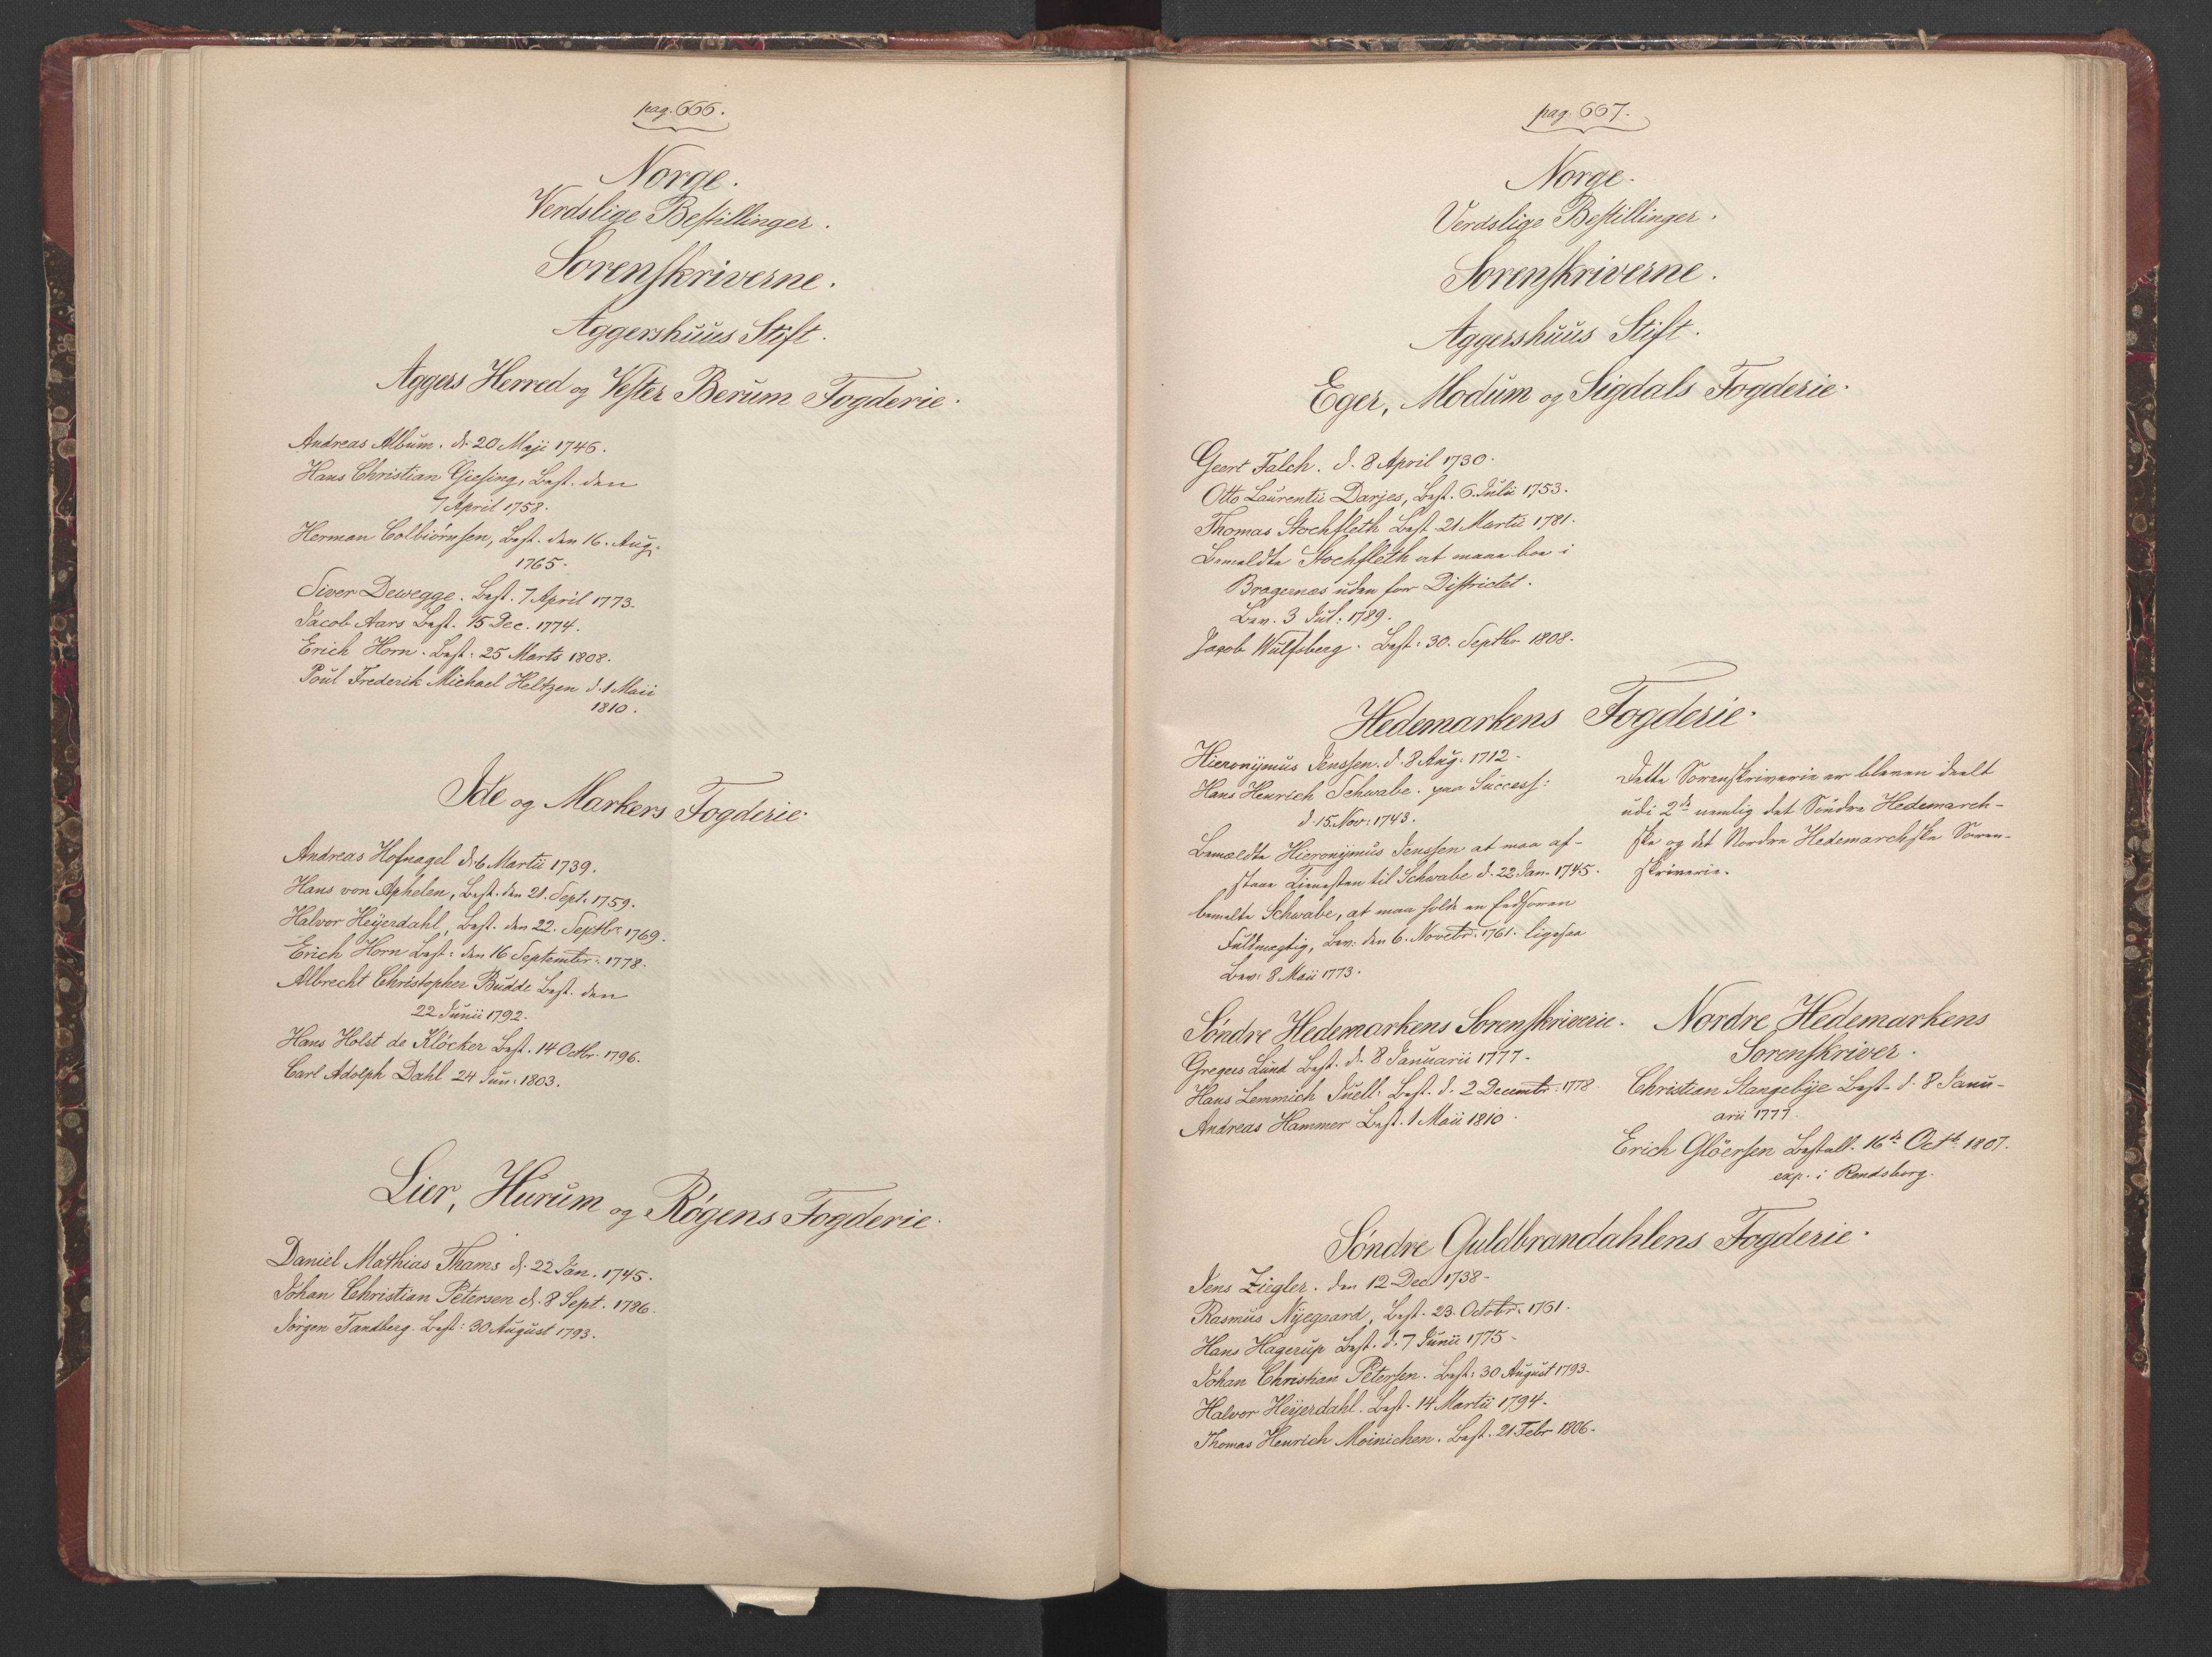 pag. 666.
Norge.
Verdslige Bestillinger.
Sorenskriverne.
Aggershuus Stift.
Aggers Herred og Vester Berum Fogderie.
Andreas Album. d. 20 Maji 1746.
Hans Christian Giesing, Best. den
7 April 1758.
Herman Colbiörnsen, Best. den 16. Aug:
1765.
Siver Dewegge. Best. 7 April 1773.
Jacob Aars Best. 15 Dec. 1774.
Erich Horn. Best: 25 Marts 1808.
Poul Frederik Michael Heltzen d. 1 Maii
1810.
Ide og Markers Fogderie.
Andreas Hofnagel d. 6 Martii 1739.
Hans von Aphelen, Best. den 21. Sept. 1759.
Halvor Heÿerdahl, Best. den 22. Septbr. 1769.
Erich Horn Best: den 16 September. 1778.
Albrecht Christopher Budde Best. den
22 Junii 1792.
Hans Holst de Klöcker Best. 14 Octbr. 1796.
Carl Adolph Dahl 24 Jun: 1803.
Lier, Hurum og Røgens Fogderie.
Daniel Mathias Thams d. 22 Jan. 1745.
Johan Christian Petersen d. 8 Sept. 1786.
Jörgen Tandberg. Best: 30 August 1793.
pag. 667.
Norge.
Verdslige Bestillinger.
Sorenskriverne.
Aggershuus Stift.
Eger, Modum og Sigdals Fogderie.
Geert Falch. d. 8 April 1730.
Otto Laurentii Darjes, Best. 6. Julii 1753.
Thomas Stochfleth Best. 21 Martii 1781.
bemeldte Stochfleth at maae boe i
Bragernæs uden for Districtet.
Bev. 3 Jul: 1789.
Jacob Wulfsberg. Best: 30. Septbr 1808.
Hedemarkens Fogderie.
Hieronÿmus Jenssen. d. 8 Aug. 1712.
Hans Henrich Schwabe. paa Success:
d. 15. Nov: 1743.
Bemældte Hieronÿmus Jenssen at maa af-
staae Tienesten til Schwabe d. 22 Jan. 1745.
bemelte Schwabe, at maa holde en Eedsoren
Fuldmægtig, Bev: den 6. Novebr. 1761. ligesaa
Bev: 8 Maii 1773.
Dette Sorenskriverie er bleven deelt
udi 2de nemlig det Söndre Hedemarch-
ske og det Nordre Hedemarchske Soren-
skriverie.
Söndre Hedemarkens Sorenskriverie.
Gregus Lund Best. d. 8 Januarii 1777.
Hans Lemmich Juell: Best. d. 2 Decembr. 1778.
Andreas Hammer Best. 1 Maii 1810.
Nordre Hedemarkens
Sorenskriver.
Christian Stangebÿe Best. d. 8 Janu-
arii 1777.
Erich Glöersen Bestall. 16de Octb. 1807.
exp. i Rendsborg.
Søndre Guldbrandahlens Fogderie.
Jens Ziegler. den 12 Dec. 1738.
Rasmus Nÿegaard, Best. 23. Octobr. 1761.
Hans Hagerup Best. d. 7 Junii 1775.
Johan Christian Petersen. Best: 30 August 1793.
Halvor Heÿerdahl. Best. 14 Martii 1794.
Thomas Henrich Moinichen. Best. 21 Febr 1806.